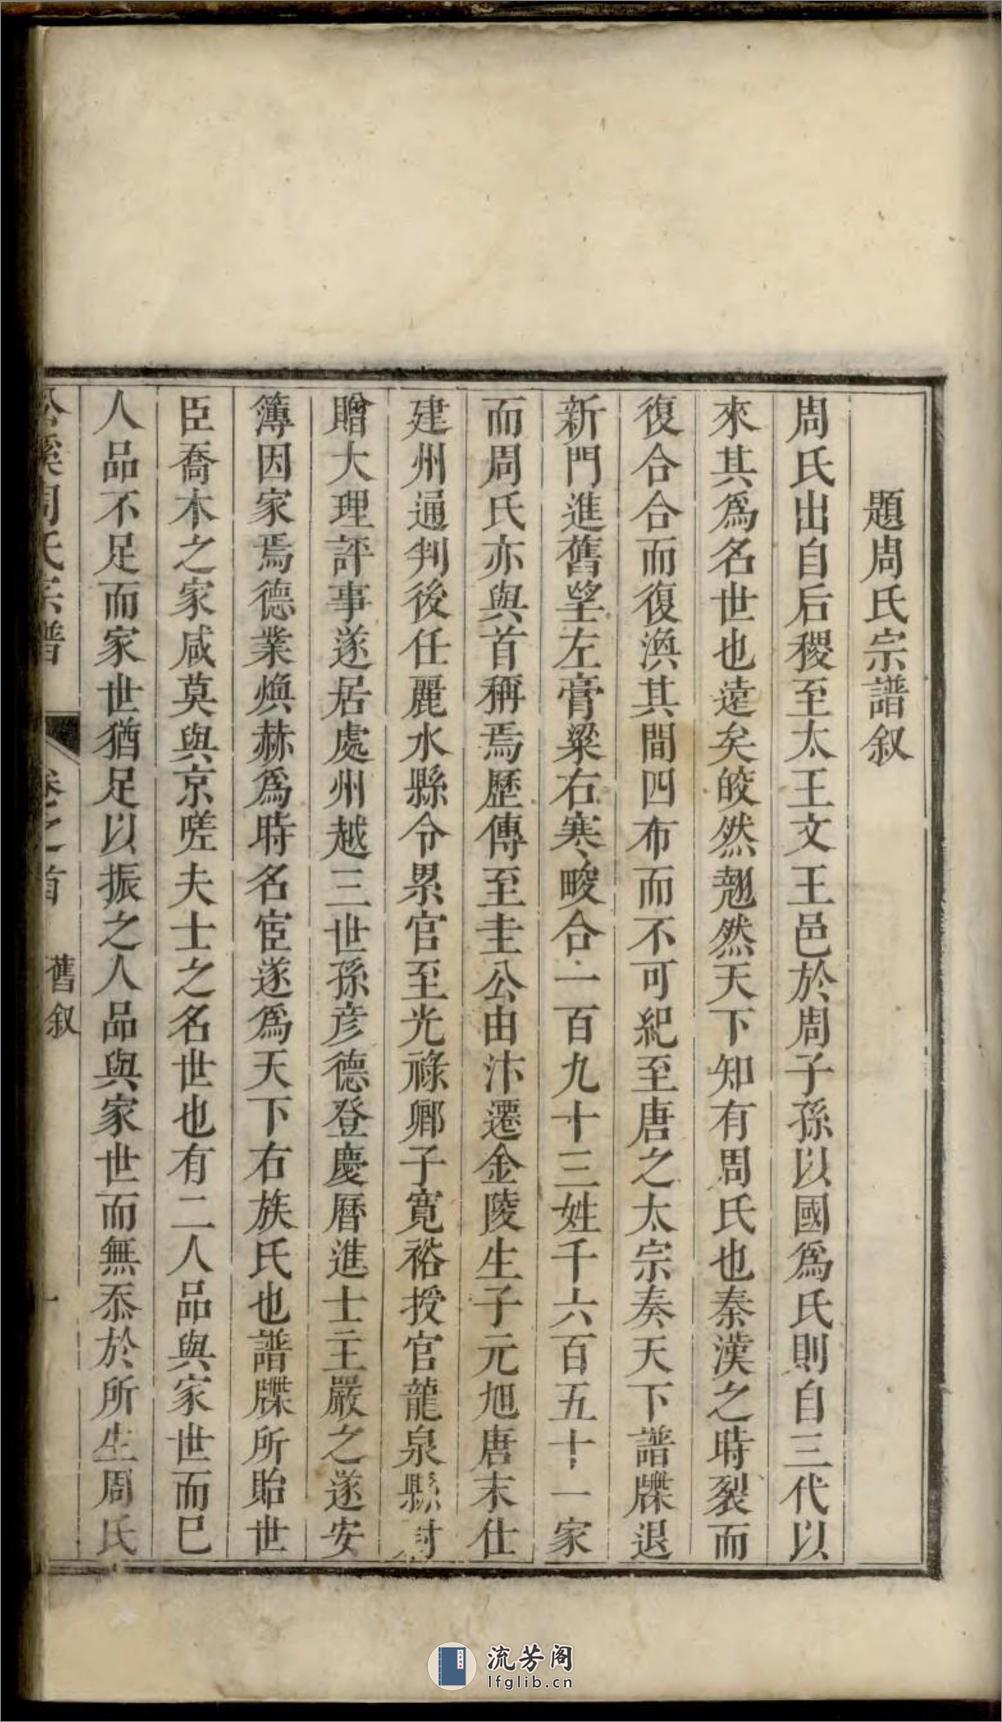 題周氏宗譜叙
周氏出自后稷至太王文王邑於周子孫以國爲氏則自三代以
來其爲名世也遠矣皎然翹然天下知有周氏也秦漢之時裂而
復合合而復渙其間四布而不可紀至唐之太宗奏天下譜牒退
新門進舊望左膏粱右寒畯合一百九十三姓千六百五十一家
而周氏亦與首稱焉歷傳至圭公由汴遷金陵生子元旭唐末仕
建州通判後任麗水縣令累官至光祿卿子寬裕授官龍泉縣封
贈大理評事遂居處州越三世孫彦德登慶曆進士主嚴之遂安
簿因家焉德業煥赫爲時名宦遂爲天下右族氏也譜牒所貽世
臣喬木之家咸莫與京嗟夫士之名世也有二人品與家世而巳
人品不足而家世猶足以振之人品與家世而無忝於所生周氏
周氏宗譜
卷之首
舊叙
一
流芳阁
lfglib.cn